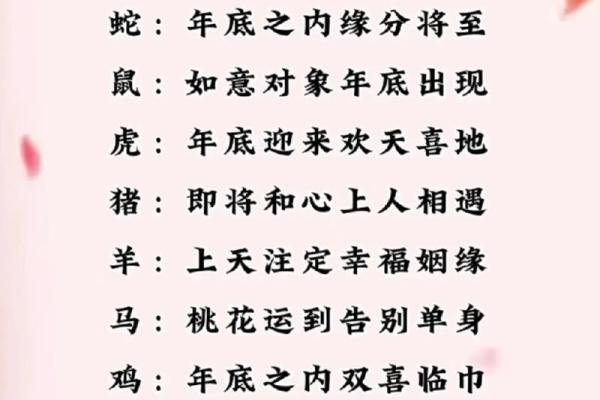 蛇：年底之内缘分将至
鼠：如意对象年底出现
虎：年底迎来欢天喜地
猪：即将和心上人相遇
羊：上天注定幸福姻缘
马：桃花运到告别单身
鸡：年底之内双喜临巾